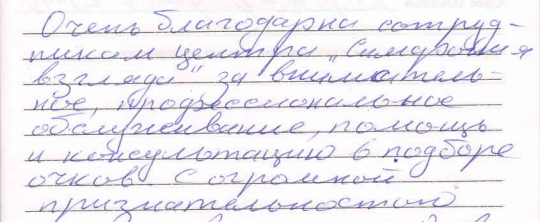 Очень благодарна сотруд-
никам центра „Симфония
взгляда" за вниматель-
ное, профессиональное
обслуживание, помощь
и консультацию в подборе
очков с огромной
признательностью